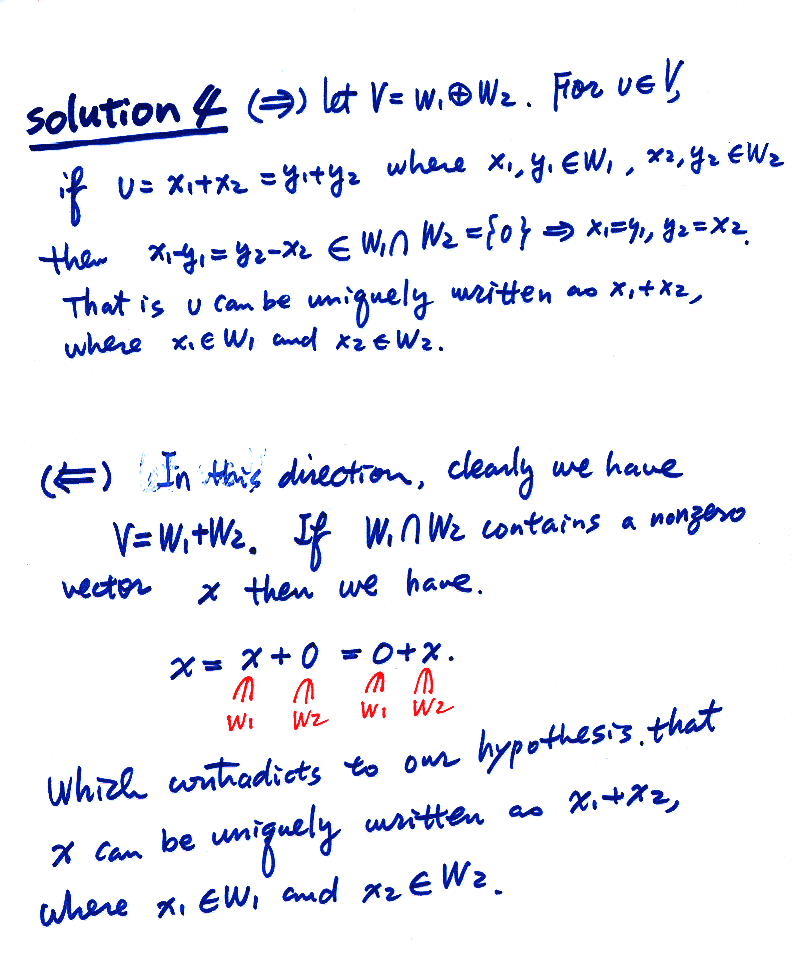 solution 4 (⇒) let V = W₁⊕W₂. For υ∈V,
if υ = x₁+x₂ = y₁+y₂ where x₁, y₁ ∈W₁, x₂, y₂ ∈W₂
then x₁-y₁ = y₂-x₂ ∈ W₁∩W₂ = {0} ⇒ x₁=y₁, y₂=x₂.
That is υ can be uniquely written as x₁+x₂,
where x₁∈W₁ and x₂∈W₂.
(⇐) In this direction, clearly we have
V=W₁+W₂. If W₁∩W₂ contains a nonzero
vector x then we have.
x = x+0 = 0+x.
⇑ ⇑ ⇑ ⇑
W₁ W₂ W₁ W₂
Which contradicts to our hypothesis that
x can be uniquely written as x₁+x₂,
where x₁∈W₁ and x₂∈W₂.